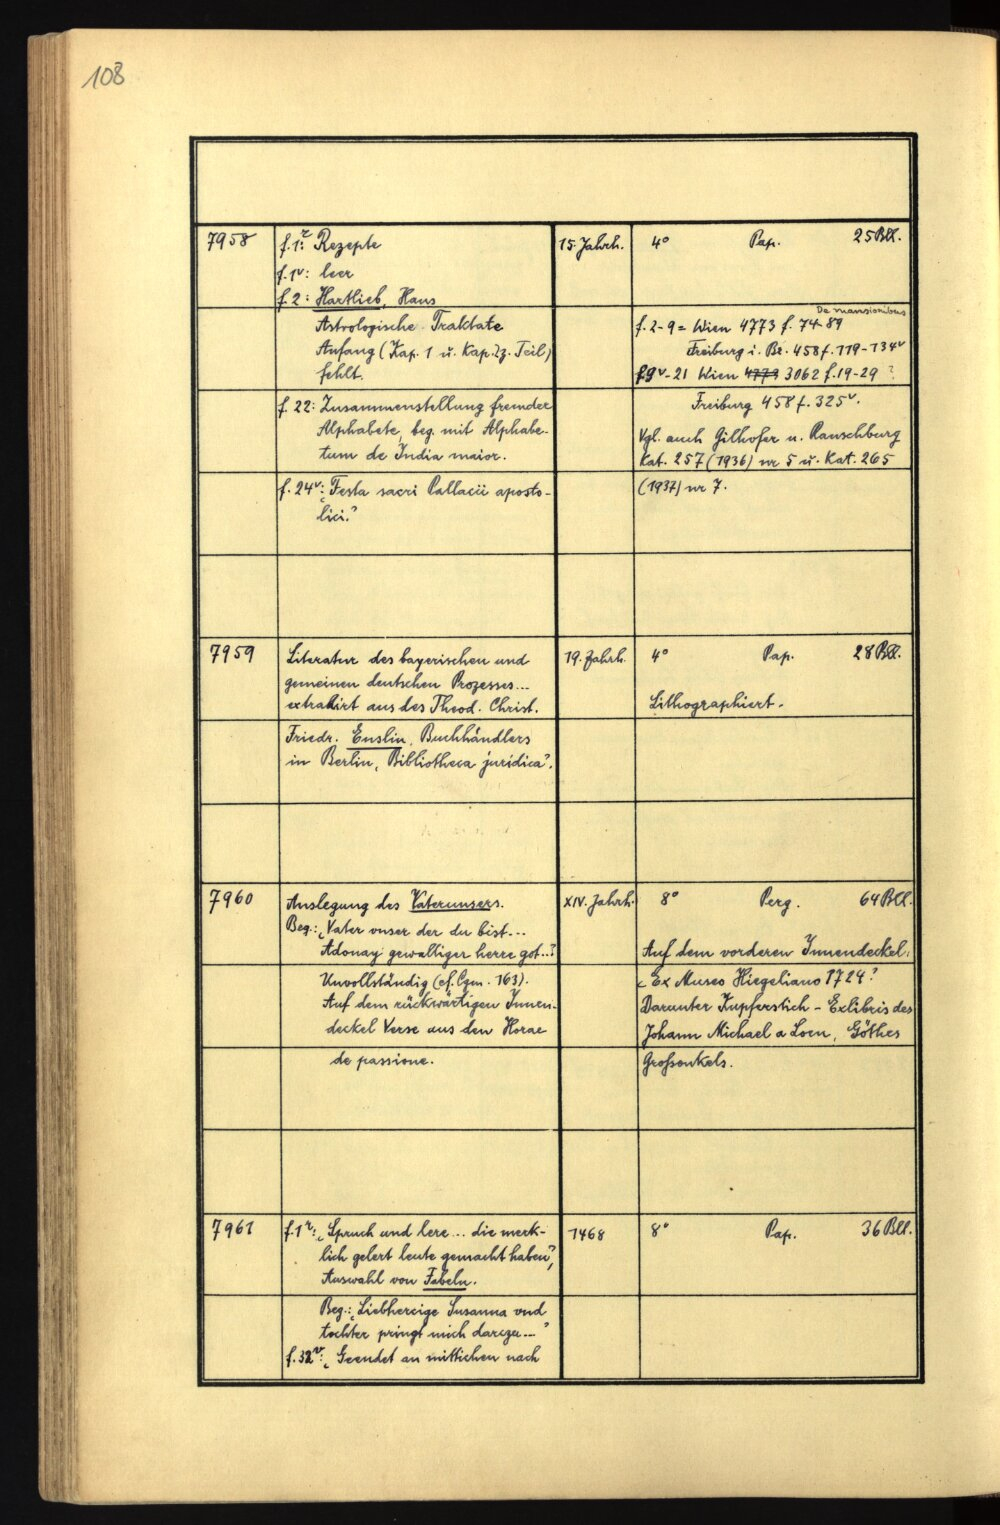 108
7958
f. 1r: Rezepte
15. Jahrh.
4° Pap. 25 Bll.
f. 1v: leer
f. 2: Hartlieb, Hans
Astrologische Traktate
Anfang (Kap. 1 u. Kap. 2 z. Teil)
fehlt.
De mansionibus
f. 2-9 = Wien 4773 f. 74-89
Freiburg i. Br. 458 f. 119-134v
f. 9v-21 Wien 4773 3062 f. 19-29 ?
f. 22: Zusammenstellung fremder
Alphabete, beg. mit Alphabe-
tum de India maior.
Freiburg 458 f. 325v.
Vgl. auch Gilhofer u. Ranschburg
Kat. 257 (1936) nr 5 u. Kat. 265
f. 24v: „Festa sacri Pallacii aposto-
lici."
(1937) nr 7.
7959
Literatur des bayerischen und
gemeinen deutschen Prozesses...
extrahirt aus des Theod. Christ.
19. Jahrh.
4° Pap. 28 Bll.
Lithographiert.
Friedr. Enslin, Buchhändlers
in Berlin, „Bibliotheca juridica".
7960
Auslegung des Vaterunsers.
Beg.: „Vater unser der du bist...
Adonay gewaltiger herre got..."
XIV. Jahrh.
8° Perg. 64 Bll.
Auf dem vorderen Innendeckel:
Unvollständig (cf. Cgm. 163).
Auf dem rückwärtigen Innen-
deckel Verse aus den Horae
„Ex Museo Hiegeliano 1724"
Darunter Kupferstich - Exlibris des
Johann Michael a Loen, Göthes
de passione.
Großonkels.
7961
f. 1r: „Spruch und lere... die merk-
lich gelert leute gemacht haben",
Auswahl von Fabeln.
1468
8° Pap. 36 Bll.
Beg.: „Liebhercige Susanna vnd
tochter pringt mich darczu..."
f. 32v: „Geendet an mittichen nach